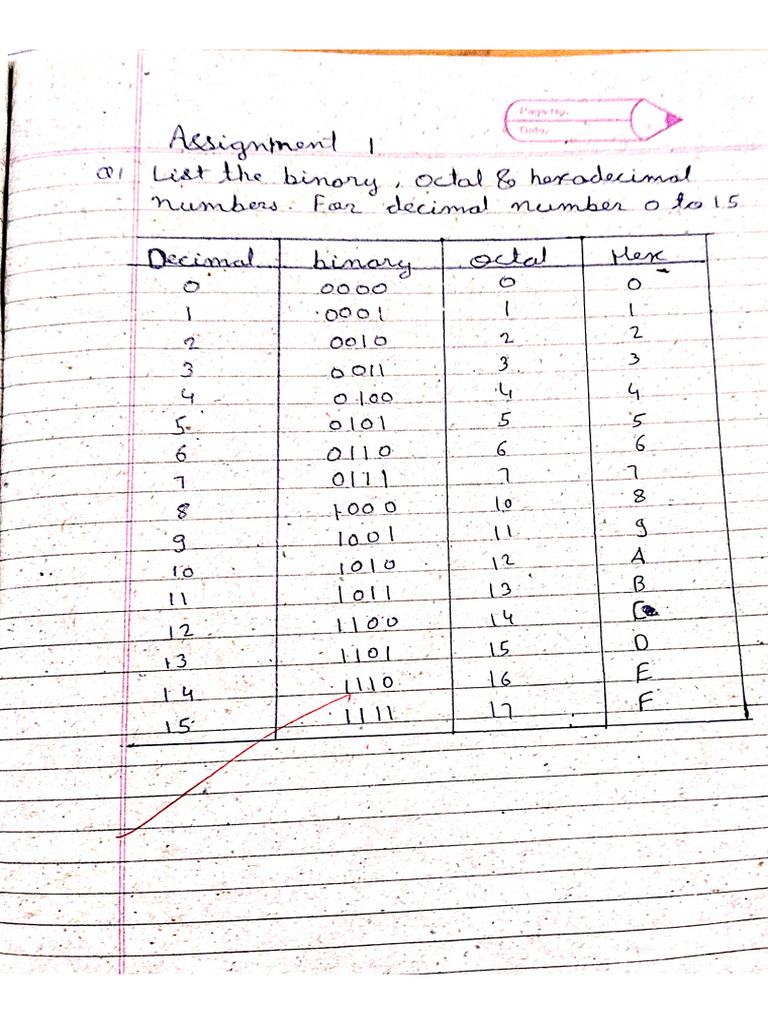 Page No.
Date.
Assignment 1
Q1 List the binary, octal & hexadecimal
numbers. For decimal number 0 to 15
Decimal binary octal Hex
0 0000 0 0
1 0001 1 1
2 0010 2 2
3 0011 3 3
4 0100 4 4
5 0101 5 5
6 0110 6 6
7 0111 7 7
8 1000 10 8
9 1001 11 9
10 1010 12 A
11 1011 13 B
12 1100 14 C
13 1101 15 D
14 1110 16 E
15 1111 17 F